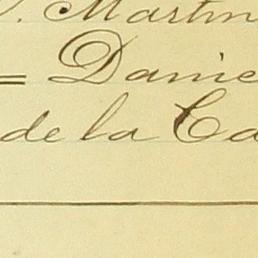 S. Martin
= Danie
de la Ca